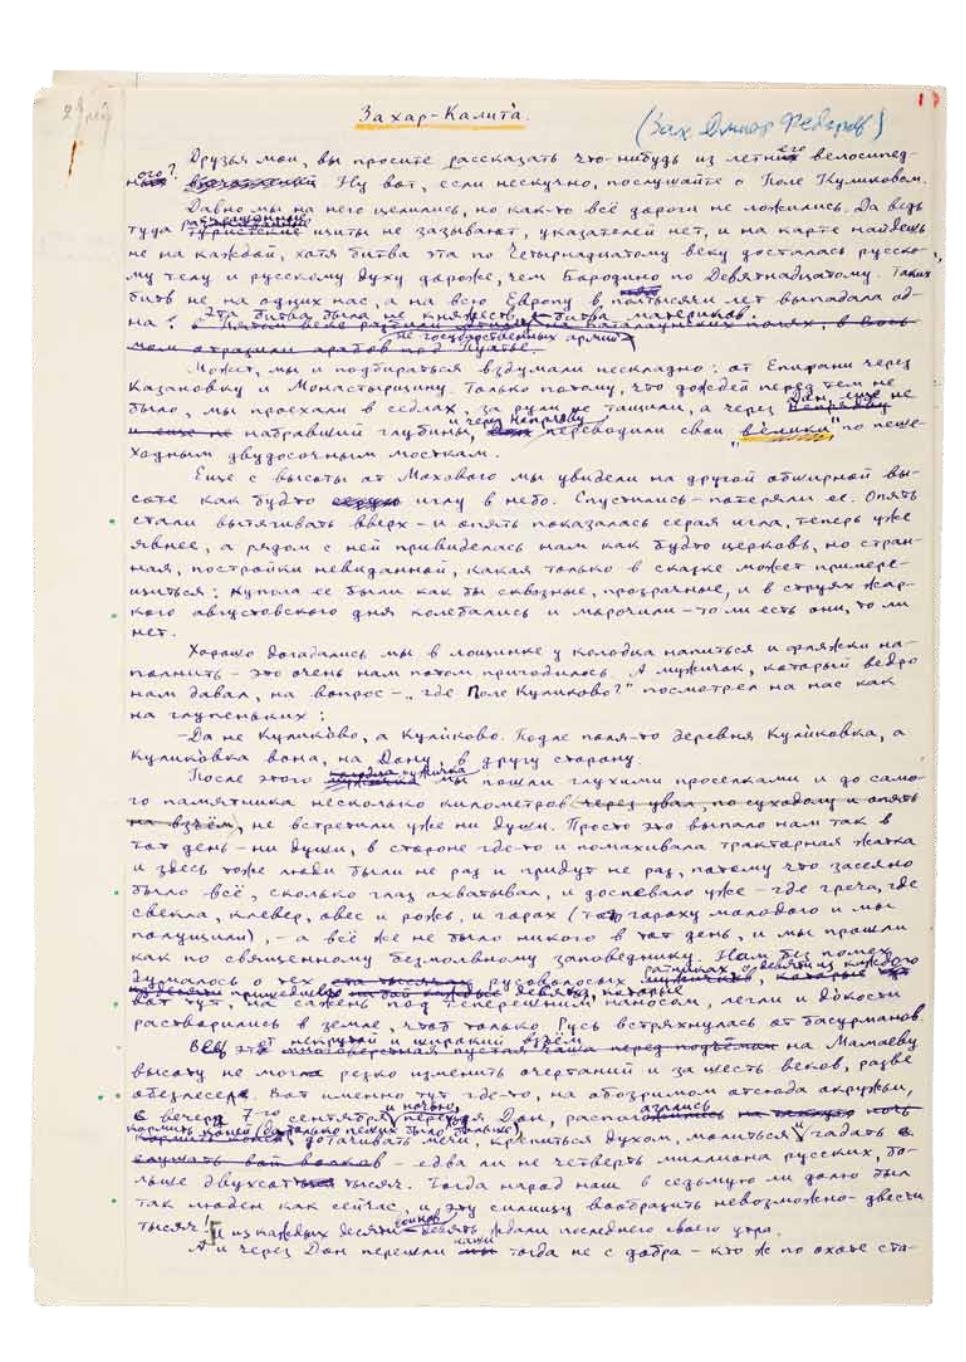 2я ред
1
Захар-Калита.
(Зах Дмитр Федоров)
Друзья мои, вы просите рассказать что-нибудь из летнего велосипед-
ного? Ну вот, если нескучно, послушайте о Поле Куликовом.
Давно мы на него целились, но как-то всё дороги не ложились. Да ведь
туда раскрашенные щиты не зазывают, указателей нет, и на карте найдёшь
не на каждой, хотя битва эта по Четырнадцатому веку досталась русско-
му телу и русскому духу дороже, чем Бородино по Девятнадцатому. Таких
битв не на одних нас, а на всю Европу в полтысячи лет выпадала од-
на. Эта битва была не княжеств, битва материков.
не государственных армий
Может, мы и подбираться вздумали нескладно: от Епифани через
Казановку и Монастырщину. Только потому, что дождей перед тем не
было, мы проехали в сёдлах, за рули не тащили, а через Дон, ещё не
набравший глубины, и через Непрядву переводили свои "велики" по пеше-
ходным двудосочным мосткам.
Ещё с высоты от Мохового мы увидели на другой обширной вы-
соте как будто иглу в небо. Спустились – потеряли её. Опять
стали вытягивать вверх – и опять показалась серая игла, теперь уже
явнее, а рядом с ней привиделась нам как будто церковь, но стран-
ная, постройки невиданной, какая только в сказке может примере-
щиться: купола её были как бы сквозные, прозрачные, и в струях жар-
кого августовского дня колебались и морочили – то ли есть они, то ли
нет.
Хорошо догадались мы в лощинке у колодца напиться и фляжки на-
полнить – это очень нам потом пригодилось. А мужичок, который ведро
нам давал, на вопрос – „где Поле Куликово?" посмотрел на нас как
на глупеньких:
–Да не Кулико́во, а Ку́ликово. Подле поля-то деревня Ку́ликовка, а
Кулико́вка вона, на Дону, в другу сторону.
После этого мужичка мы пошли глухими просёлками и до само-
го памятника несколько километров через увал, по суходолу и опять
на взъём, не встретили уже ни души. Просто это выпало нам так в
тот день – ни души, в стороне где-то и помахивала тракторная жатка
и здесь тоже люди были не раз и придут не раз, потому что засеяно
было всё, сколько глаз охватывал, и доспевало уже – где греча, где
свёкла, клевер, овёс и рожь, и горох (того гороху молодого и мы
полущили), – а всё же не было никого в тот день, и мы прошли
как по священному безмолвному заповеднику. Нам без помех
думалось о тех русоволосых ратниках, о девяти из каждого
десятка пришедших, которые
вот тут, на сажень под теперешним наносом, легли и докости
растворились в земле, чтоб только Русь встряхнулась от басурманов.
Весь этот некрутой и широкий взъём на Мамаеву
высоту не мог резко изменить очертаний и за шесть веков, разве
обезлесел. Вот именно тут где-то, на обозримом отсюда окружьи,
с вечера 7-го сентября и ночью, переходя Дон, располагались
кормить коней (да только пеших было больше), дотачивать мечи, крепиться духом, молиться и гадать
– едва ли не четверть миллиона русских, бо-
льше двухсот тысяч. Тогда народ наш в седьмую ли долю был
так людён как сейчас, и эту силищу вообразить невозможно – двести
тысяч! И из каждых десяти воинов девять ждали последнего своего утра.
А и через Дон перешли наши тогда не с добра – кто ж по охоте ста-